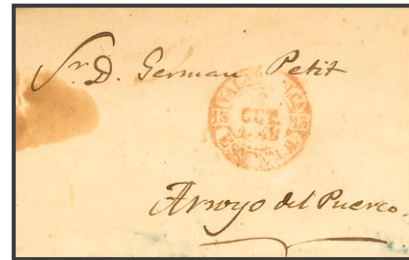 Sr. D. German Petit
OCT.
Arroyo del Puerco.